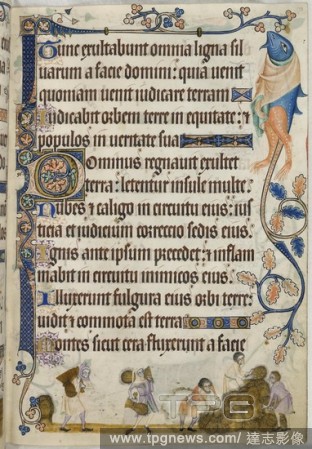 Tunc exultabunt omnia ligna sil
uarum a facie domini: quia uenit
quoniam uenit iudicare terram
Iudicabit orbem terre in equitate: &
populos in ueritate sua
Dominus regnauit exultet
terra: letentur insule multe.
Nubes & caligo in circuitu eius: ius
ticia et iudicium correccio sedis eius.
Ignis ante ipsum precedet: & inflam
mabit in circuitu inimicos eius.
Illuxerunt fulgura eius orbi terre:
uidit & commota est terra
Montes sicut cera fluxerunt a facie
TPG
www.tpgnews.com/ 達志影像